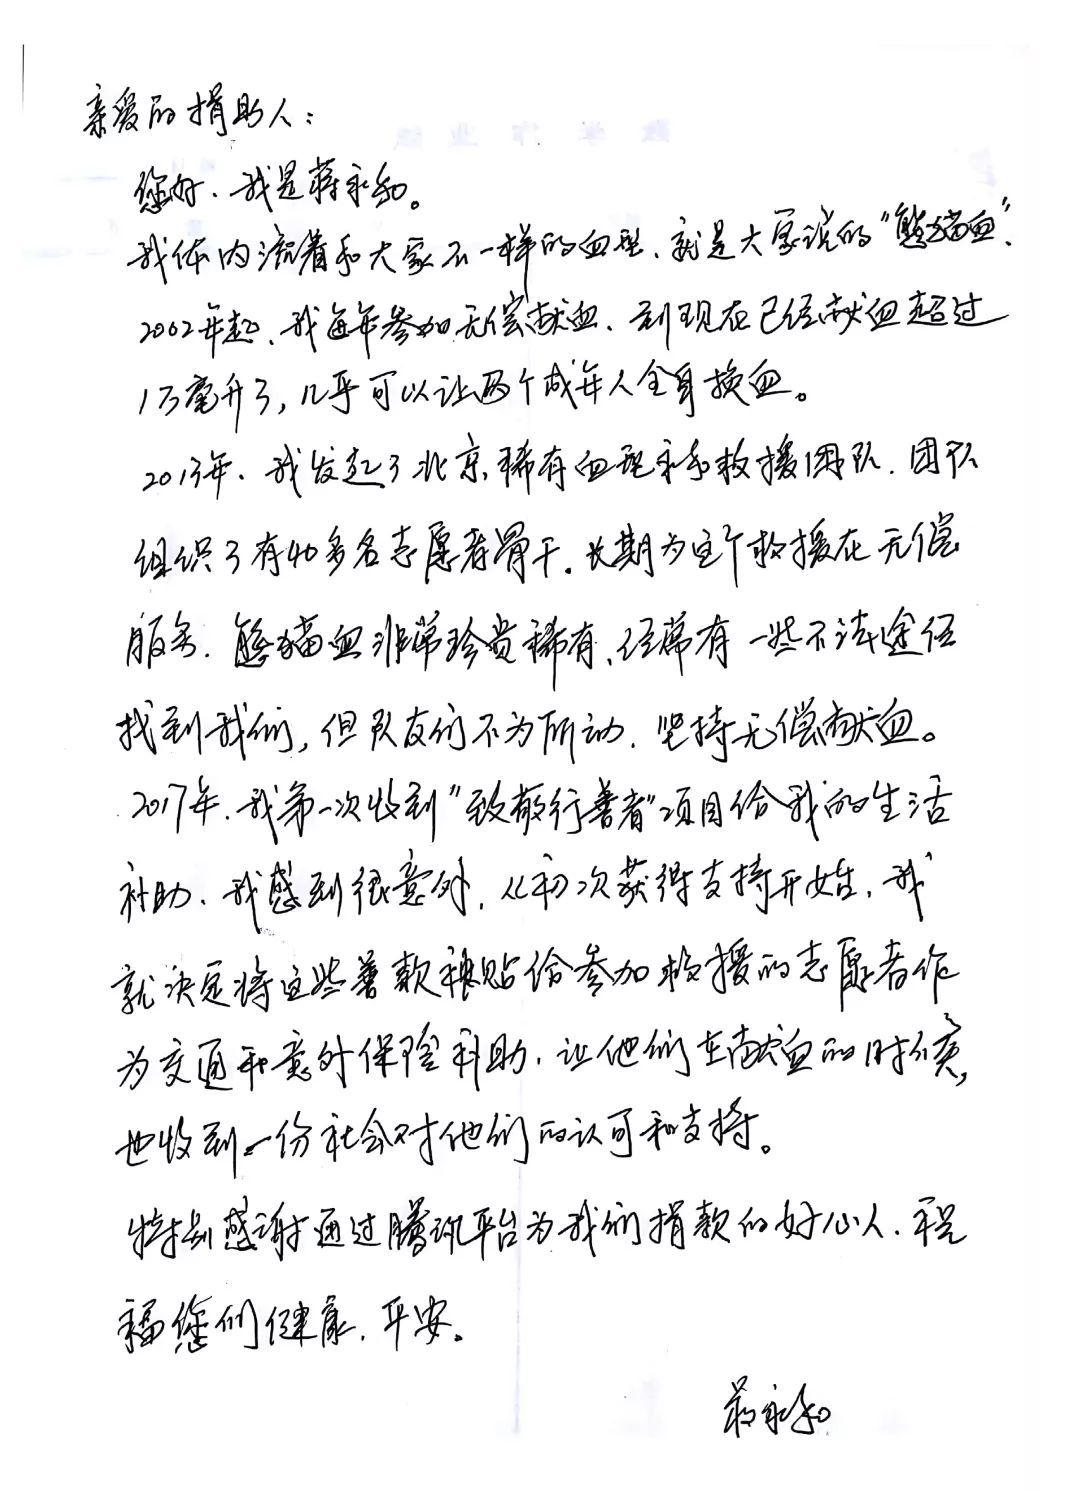 亲爱的捐助人：
您好、我是蒋永和。
我体内流着和大家不一样的血型、就是大家说的“熊猫血”、
2002年起、我每年参加无偿献血、到现在已经献血超过
1万毫升了，几乎可以让两个成年人全身换血。
2013年、我发起了北京稀有血型永和救援团队、团队
组织了有40多名志愿者骨干。长期为这个救援在无偿
服务、熊猫血非常珍贵稀有、经常有一些不法途径
找到我们，但队友们不为所动、坚持无偿献血。
2017年、我第一次收到“致敬行善者”项目给我的生活
补助、我感到很意外，从初次获得支持开始、我
就决定将这些善款补贴给参加救援的志愿者作
为交通和意外保险补助、让他们在献血的时候，
也收到一份社会对他们的认可和支持。
特别感谢通过腾讯平台为我们捐款的好心人、祝
福您们健康、平安。
蒋永和